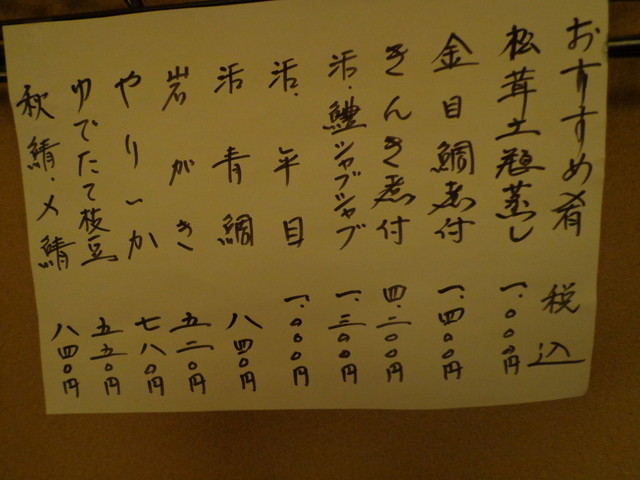 おすすめ肴 税込
松茸土瓶蒸し 一.〇〇〇円
金目鯛煮付 一.四〇〇円
きんき煮付 四.二〇〇円
活・鱧シャブシャブ 一.三〇〇円
活・平目 一.〇〇〇円
活青鯛 八四〇円
岩がき 五二〇円
やりいか 七八〇円
ゆでたて枝豆 五五〇円
秋鯖・〆鯖 八四〇円